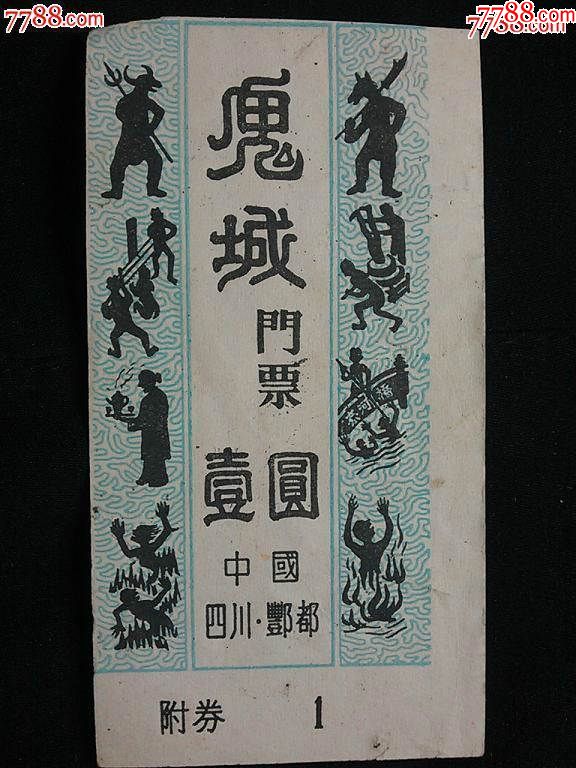 7788.com 7788.com
鬼
城
門
票
壹圓
中國
四川·酆都
附券 1
7788.com 7788.com